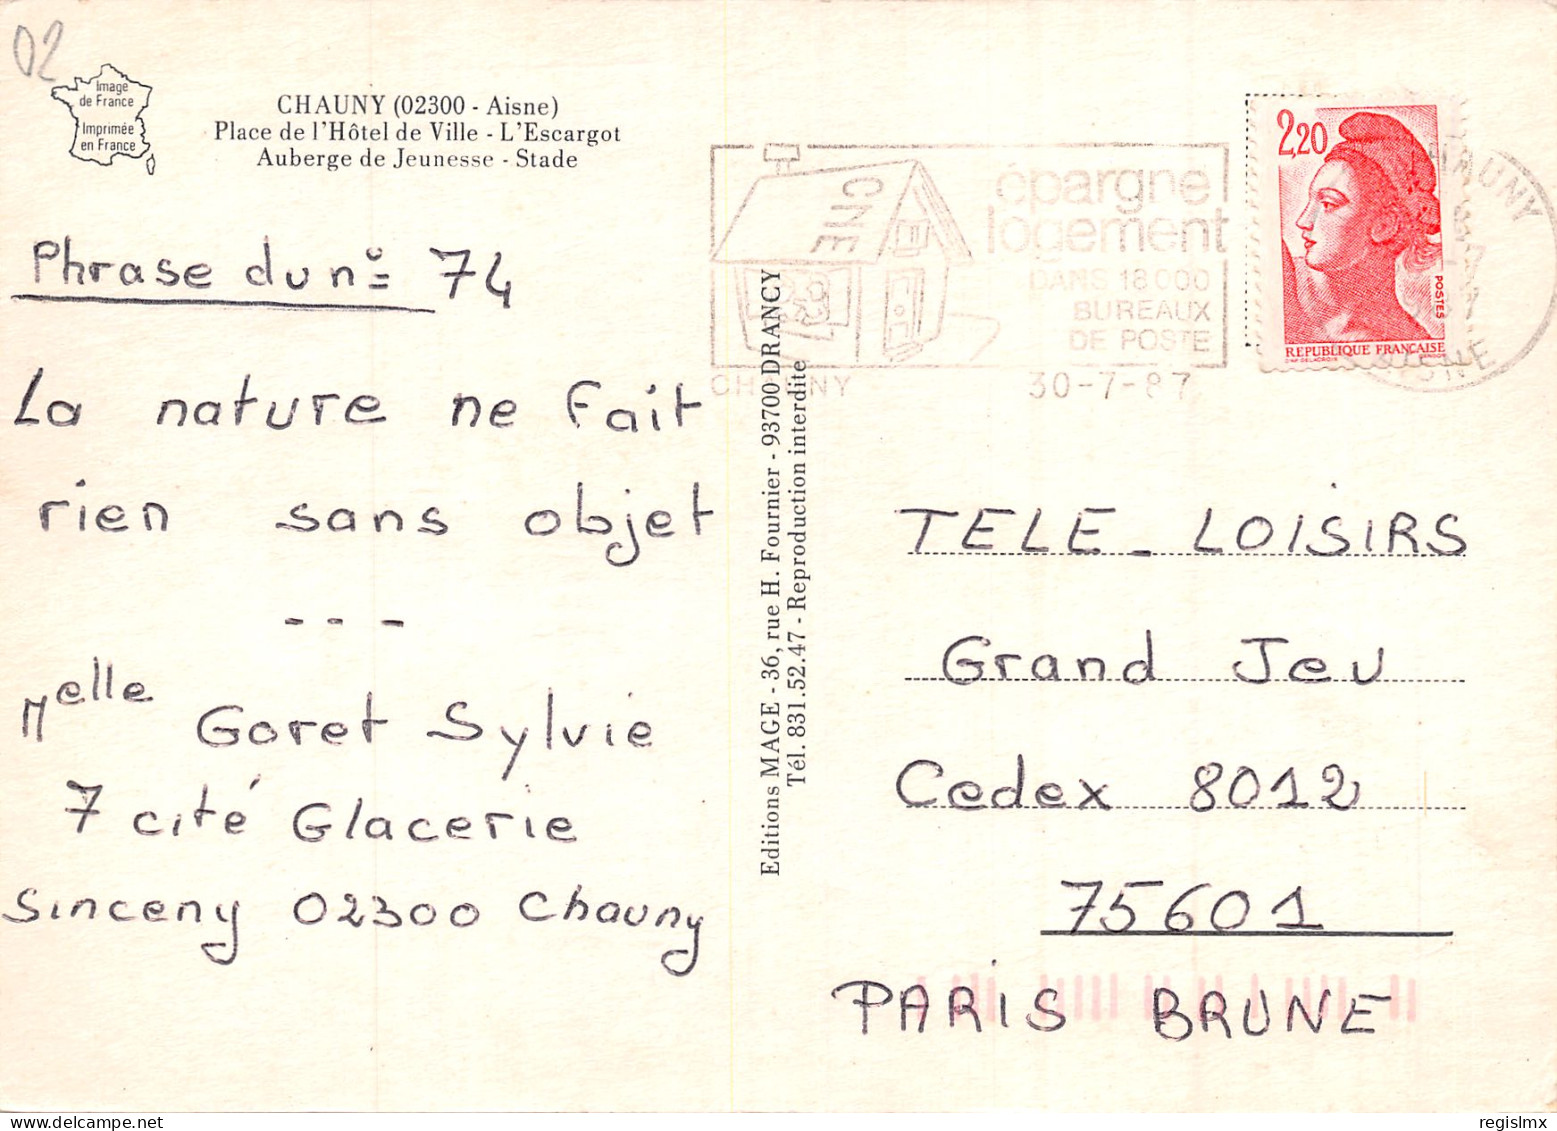 02
Image
de France
Imprimée
en France
CHAUNY (02300 - Aisne)
Place de l'Hôtel de Ville - L'Escargot
Auberge de Jeunesse - Stade
Phrase du n° 74
La nature ne fait
rien sans objet
---
Melle Goret Sylvie
7 cité Glacerie
Sinceny 02300 Chauny
Editions MAGE - 36, rue H. Fournier - 93700 DRANCY
Tél. 831.52.47 - Reproduction interdite
CNE
épargne
logement
DANS 18000
BUREAUX
DE POSTE
CHAUNY 30-7-87
2,20
POSTES
REPUBLIQUE FRANÇAISE
CHAUNY
AISNE
TELE-LOISIRS
Grand Jeu
Cedex 8012
75601
PARIS BRUNE
regislmx